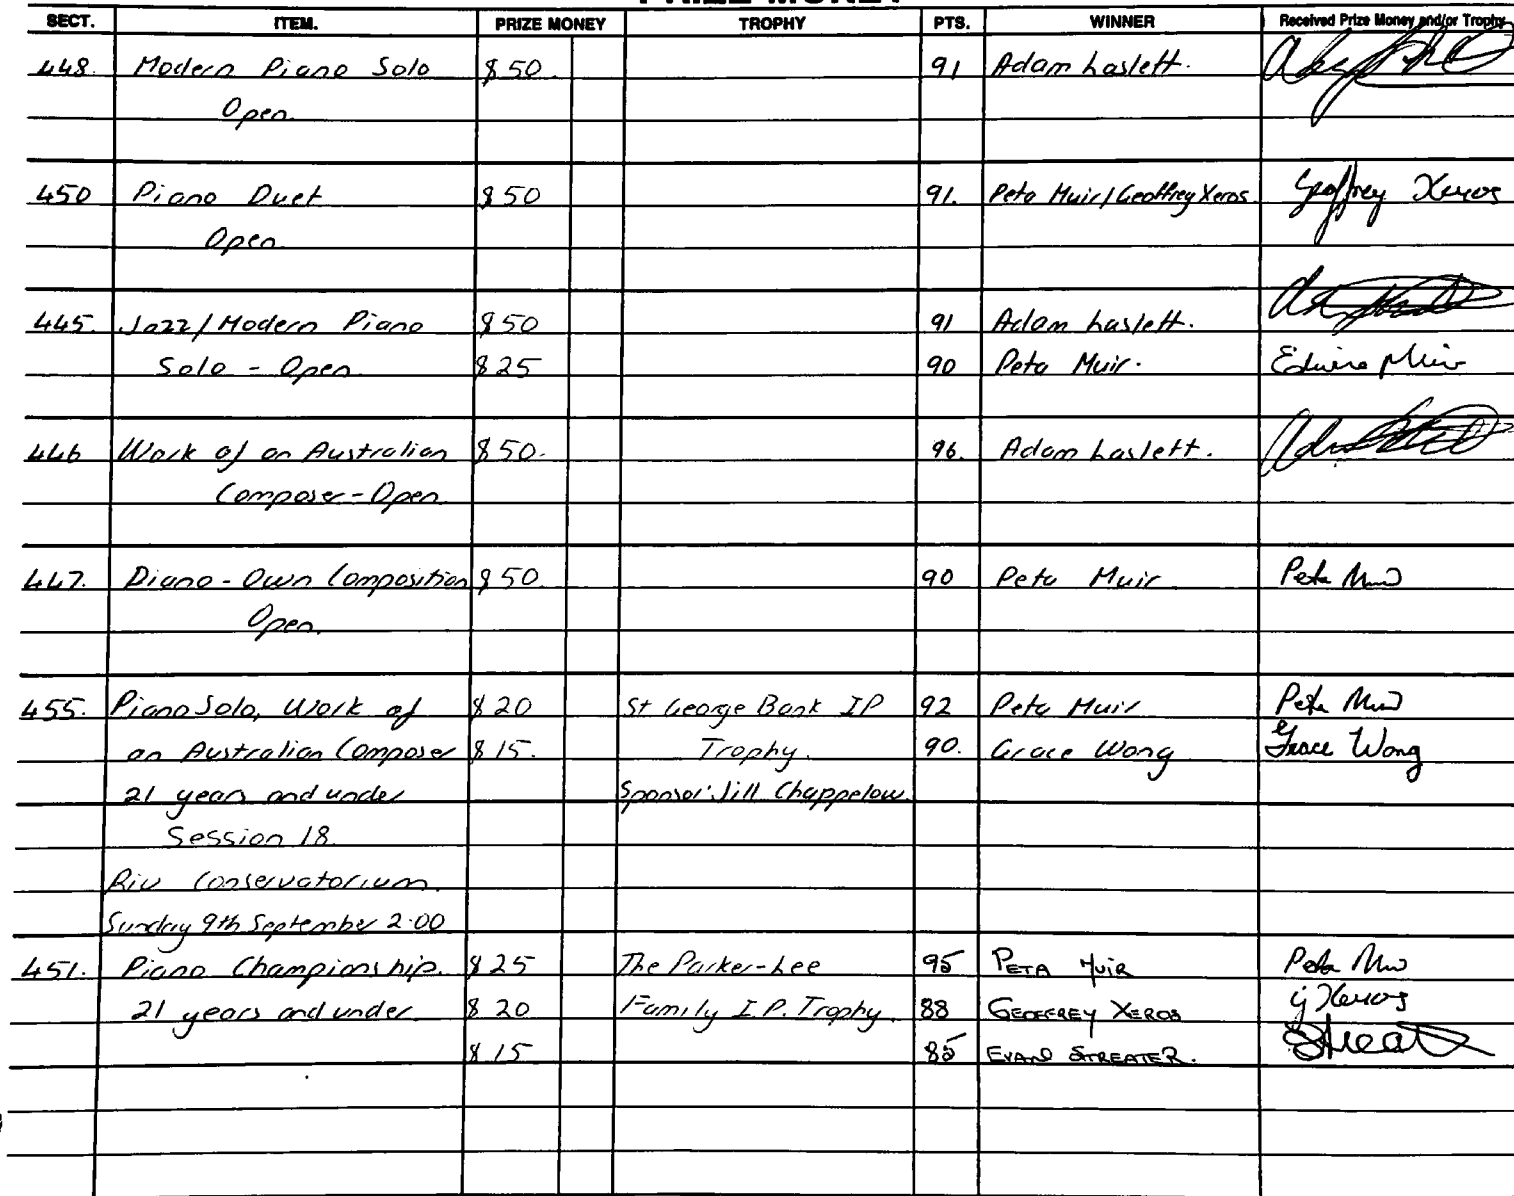 PRIZE MONEY
SECT. ITEM. PRIZE MONEY TROPHY PTS. WINNER Received Prize Money and/or Trophy
448. Modern Piano Solo $50 91 Adam Laslett.
Open.
450 Piano Duet $50 91. Peta Muir/Geoffrey Xeros. Geoffrey Xeros
Open.
445. Jazz/Modern Piano $50 91 Adam Laslett.
Solo - Open $25 90 Peta Muir. Edwina Muir
446 Work of an Australian $50. 96. Adam Laslett.
Composer - Open
447. Piano - Own Composition $50. 90 Peta Muir Peta Muir
Open.
455. Piano Solo, Work of $20 St George Bank IP 92 Peta Muir Peta Muir
an Australian Composer $15. Trophy. 90. Grace Wong Grace Wong
21 years and under Sponsor: Jill Chappelow.
Session 18.
Riv Conservatorium.
Sunday 9th September 2.00
451. Piano Championship. $25 The Parker-Lee 95 PETA MUIR Peta Muir
21 years and under $20 Family I.P. Trophy. 88 GEOFFREY XEROS G Xeros
$15 85 EVAN STREATER.